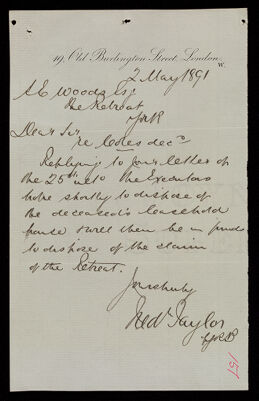 19, Old Burlington Street, London,
W.
2 May 1891
A E Woods Esq
The Retreat
York
Dear Sir
re Coles decd
Replying to your letter of
the 25th ulto the Executors
hope shortly to dispose of
the deceased's leasehold
house & will then be in funds
to dispose of the claim
of the Retreat.
Yours truly
Fredk Taylor
151